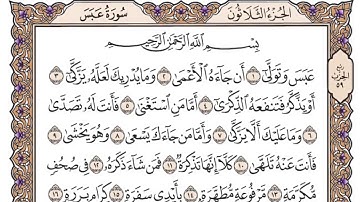 سُورَةُ عَبَسَ
الجُزْءُ الثَّلَاثُونَ
بِسْمِ اللَّهِ الرَّحْمَٰنِ الرَّحِيمِ
عَبَسَ وَتَوَلَّىٰ ١ أَن جَاءَهُ الْأَعْمَىٰ ٢ وَمَا يُدْرِيكَ لَعَلَّهُ يَزَّكَّىٰ ٣
أَوْ يَذَّكَّرُ فَتَنفَعَهُ الذِّكْرَىٰ ٤ أَمَّا مَنِ اسْتَغْنَىٰ ٥ فَأَنتَ لَهُ تَصَدَّىٰ
٦ وَمَا عَلَيْكَ أَلَّا يَزَّكَّىٰ ٧ وَأَمَّا مَن جَاءَكَ يَسْعَىٰ ٨ وَهُوَ يَخْشَىٰ ٩
فَأَنتَ عَنْهُ تَلَهَّىٰ ١٠ كَلَّا إِنَّهَا تَذْكِرَةٌ ١١ فَمَن شَاءَ ذَكَرَهُ ١٢ فِي صُحُفٍ
مُّكَرَّمَةٍ ١٣ مَّرْفُوعَةٍ مُّطَهَّرَةٍ ١٤ بِأَيْدِي سَفَرَةٍ ١٥ كِرَامٍ بَرَرَةٍ ١٦
الحزب
٥٩